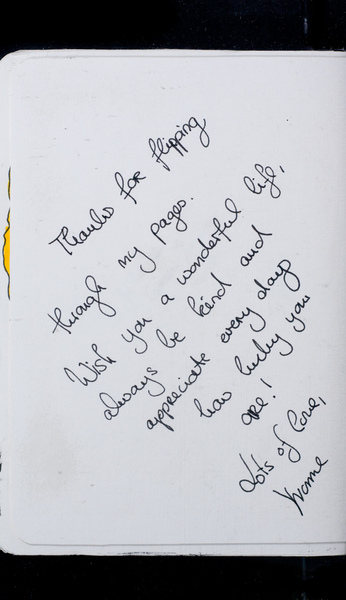 Thanks for flipping
through my pages.
Wish you a wonderful life,
always be kind and
appreciate every day
how lucky you
are!
Lots of love,
Yvonne